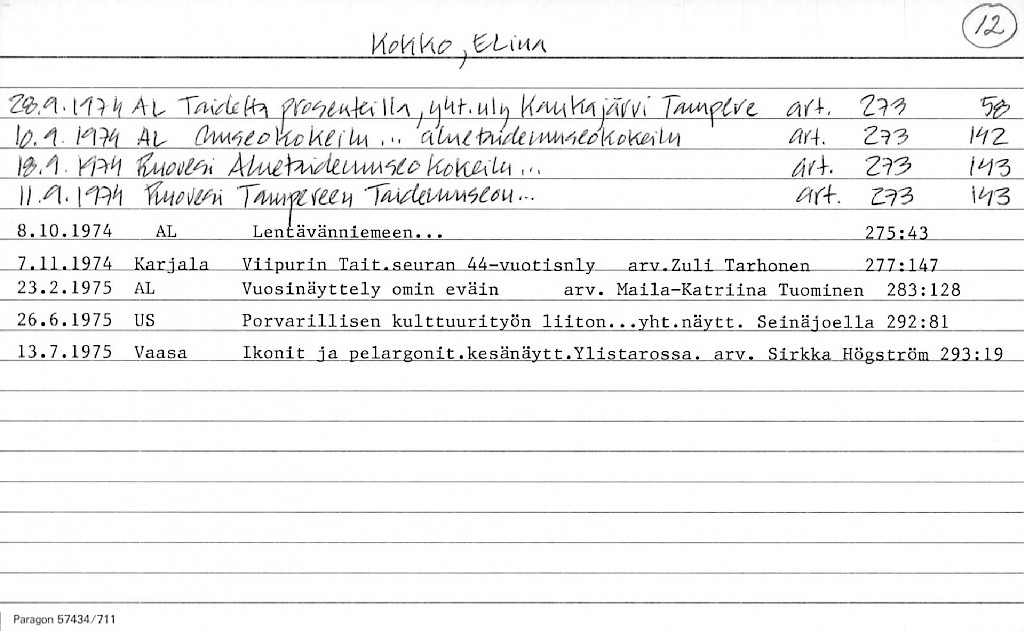 12
Kokko, Elina
28.9.1974 AL Taidetta prosenteilla, yht.nly Kaukajärvi Tampere art. 273 58
10.9.1974 AL Museokokeilu... aluetaidemuseokokeilu art. 273 142
18.9.1974 Ruovesi Aluetaidemuseo kokeilu... art. 273 143
11.9.1974 Ruovesi Tampereen Taidemuseon... art. 273 143
8.10.1974 AL Lentävänniemeen... 275:43
7.11.1974 Karjala Viipurin Tait.seuran 44-vuotisnly arv.Zuli Tarhonen 277:147
23.2.1975 AL Vuosinäyttely omin eväin arv. Maila-Katriina Tuominen 283:128
26.6.1975 US Porvarillisen kulttuurityön liiton...yht.näytt. Seinäjoella 292:81
13.7.1975 Vaasa Ikonit ja pelargonit.kesänäytt.Ylistarossa. arv. Sirkka Högström 293:19
Paragon 57434/711